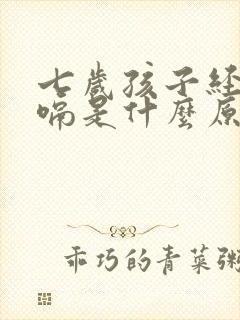 七歲孩子經
嗝是什麼原
乖巧的青菜粥